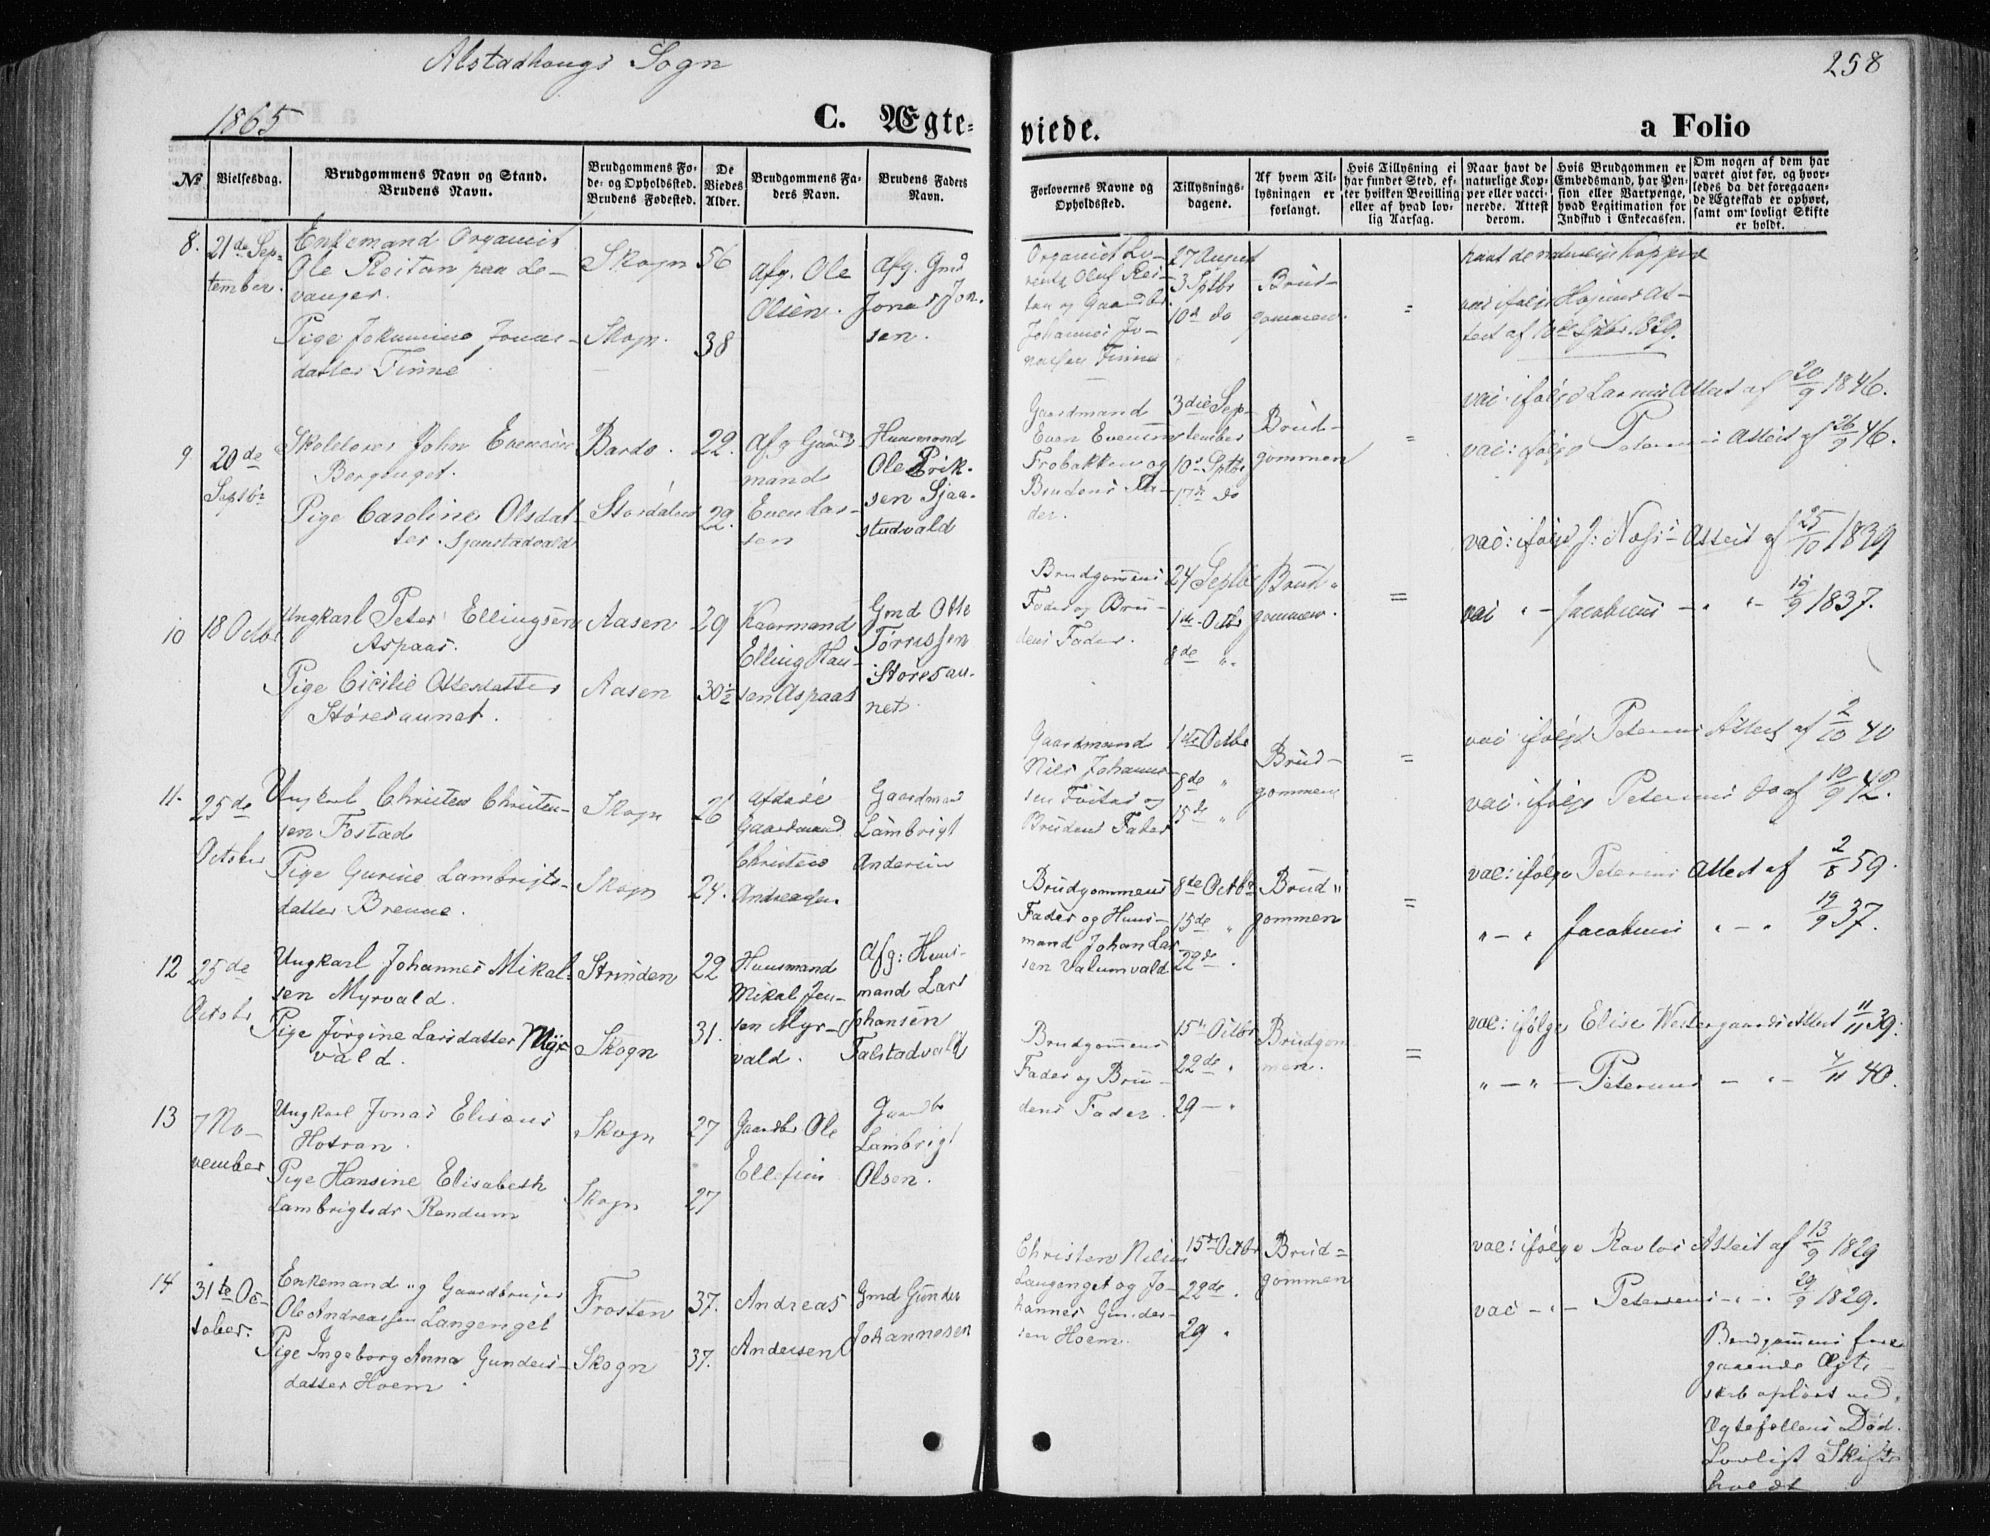 Alstadhougs Sogn
258
1865
C. Ægte-
viede.
a Folio
No
Vielsesdag.
Brudgommens Navn og Stand.
Brudens Navn.
Brudgommens Fø-
de- og Opholdssted.
Brudens Fødested.
De
Viedes
Alder.
Brudgommens Fa-
ders Navn.
Brudens Faders
Navn.
Forlovernes Navne og
Opholdssted.
Tillysnings-
dagene.
Af hvem Til-
lysningen er
forlangt.
Hvis Tillysning ei
har fundet Sted, ef-
ter hvilken Bevilling
eller af hvad lov-
lig Aarsag.
Naar havt de
naturlige Kop-
per eller vacci-
nerede. Attest
derom.
Hvis Brudgommen er
Embedsmand, har Pen-
sion eller Vartpenge,
hvad Legitimation for
Indskud i Enkecassen.
Om nogen af dem har
været gift før, og hvor-
ledes da det foregaaen-
de Ægteskab er ophørt,
samt om lovligt Skifte
er holdt.
8.
21de Sep-
tember.
Enkemand Organist
Ole Reitan paa Le-
vanger.
Pige Jokumine Jonas-
datter Finne
Skogn
Skogn.
56
38
Afg. Ole
Olsen.
Afg. Gmd
Jonas Jon-
sen.
Organist Lo-
rents Oluf Rei-
tan og Gaardbr.
Johannes Jo-
nassen Finne
27 August
3 Sptbr
10de do
Brud-
gommen.
=
havt de naturlige Kopper
vac ifølge At-
test af 10de Sptbr. 1829.
9
20de
Septbr
Skolelærer John Evensen
Berganget.
Pige Caroline Olsdat-
ter. Sjaastadvald
Bardo.
Stordalen
22.
22.
Afg Gaard
mand
Even Lar-
sen
Huusmand
Ole Erik-
sen Sjaa-
stadvald
Gaardmand
Even Evensen
Frobakken og
Brudens Fa-
der.
3die Sep-
tember
10de Sptbr
17de do
Brud-
gommen
=
vac: ifølge Attest af 20/9 1846.
vac: ifølge Petersens Attest af 26/9 46.
10
18 Octbr
Ungkarl Peter Ellingsen
Aspaas.
Pige Cicilie Ottesdatter
Støresaunet.
Aasen
Aasen
29
30½
Kaarmand
Elling Han-
sen Aspaas
Gmd Otte
Tørrissen
Støresau-
net.
Brudgommens
Fader og Bru-
dens Fader.
24 Septbr
1ste Octbr
8de "
Brud-
gommen.
=
vac: ifølge Attest af 25/10 1839
vac " - Jacobsens - " - 19/9 1837.
11.
25de
October
Ungkarl Christen Christen-
sen Fostad
Pige Gurine Lambrigts-
datter Brenne.
Skogn
Skogn
26
24.
Afdøde
Gaardmand
Christen
Andreasen.
Gaardmand
Lambrigt
Andersen
Gaardmand
Nils Johanne-
sen Fostad og
Brudens Fader
1ste Octbr
8de "
15de "
Brud-
gommen
=
vac: ifølge Petersens Attest af 2/10 40
vac: ifølge Petersens do af 10/9 42.
12
25de
Octobr
Ungkarl Johannes Mikal-
sen Myrvald.
Pige Jørgine Larsdatter Myr-
vald.
Strinden
Skogn
22
31.
Huusmand
Mikal Jen-
sen Myr-
vald.
Afg: Huus-
mand Lars
Johansen
Falstadvald
Brudgommens
Fader og Huus-
mand Johan Lar-
sen Valumvald
8de Octbr
15de "
22de "
Brud-
gommen
=
vac: ifølge Petersens Attest af 2/8 59.
" - " Jacobsens " - " 19/9 37.
13
7 No-
vember
Ungkarl Jonas Elisæus
Hotran.
Pige Hansine Elisabeth
Lambrigtsdr Rendum
Skogn
Skogn
27
27
Gaardbr Ole
Ellefsen
Gaardbr
Lambrigt
Olsen.
Brudgommens
Fader og Bru-
dens Fader.
15de Octbr
22de "
29 - "
Brudgom
men.
=
vac: ifølge Elise Westergaards Attest 11/11 39.
" - " - Petersens - " - 7/11 40.
14
31te Oc-
tober.
Enkemand og Gaardbruger
Ole Andreassen Langenget
Pige Ingeborg Anna Gunders-
datter Hoem.
Frosten
Skogn
37.
37.
Andreas
Andersen
Gmd Gunder
Johannesen
Christen Nilsen
Langenget og Jo-
hannes Gunder-
sen Hoem.
15de Octbr
22de "
29 "
Brud=
gommen
vac: ifølge Attest af 13/9 1829
vac - " - Petersens - " - 29/9 1829.
Brudgommens fore-
gaaende Ægte-
skab opløst ved
Ægtefellens Død.
Lovligt Skifte
holdt